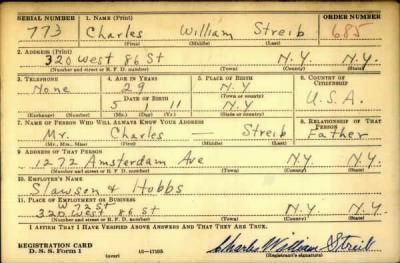 SERIAL NUMBER 1. NAME (Print) ORDER NUMBER
773 Charles William Streib 685
(First) (Middle) (Last)
2. ADDRESS (Print)
320 West 86 St N.Y. N.Y.
(Number and street or R. F. D. number) (Town) (County) (State)
3. TELEPHONE 4. AGE IN YEARS 5. PLACE OF BIRTH 6. COUNTRY OF CITIZENSHIP
None 29 N.Y.
(Town or county)
DATE OF BIRTH U.S.A.
5 11 N.Y.
(Exchange) (No.) (Mo.) (Day) (Yr.) (State or country)
7. NAME OF PERSON WHO WILL ALWAYS KNOW YOUR ADDRESS 8. RELATIONSHIP OF THAT PERSON
Mr. Charles — Streib Father
(Mr., Mrs., Miss) (First) (Middle) (Last)
9. ADDRESS OF THAT PERSON
1272 Amsterdam Ave N.Y. N.Y.
(Number and street or R. F. D. number) (Town) (County) (State)
10. EMPLOYER'S NAME
Slawson & Hobbs
11. PLACE OF EMPLOYMENT OR BUSINESS
W 72 St
320 West 86 St N.Y. N.Y.
(Number and street or R. F. D. number) (Town) (County) (State)
I AFFIRM THAT I HAVE VERIFIED ABOVE ANSWERS AND THAT THEY ARE TRUE.
REGISTRATION CARD
D. S. S. Form 1 (over) 16—17105 Charles William Streib
(Registrant's signature)